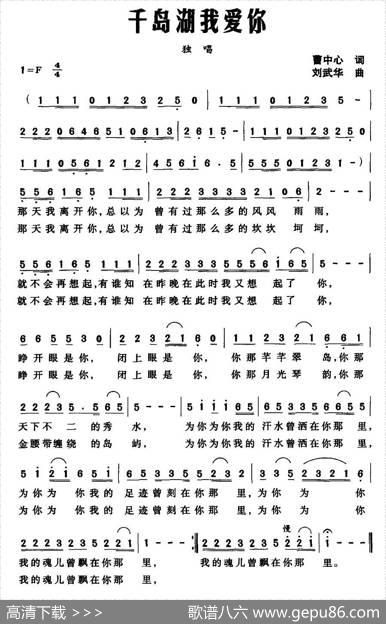 千岛湖我爱你
独唱
1=F 4/4
曹中心 词
刘武华 曲
(1 1 1 0 1 2 3 2 5 0 | 1 1 1 0 1 2 3 2 5 0 |
2 2 2 0 6 4 6 5 1 0 6 1 3 | 2 6 1 5 - | 1 1 1 0 1 2 3 2 5 0 |
1 1 1 0 5 6 1 2 1 2 | 4 5 6 1 6 · 5 | 5 5 5 0 1 2 3 1 - )
5 5 6 1 6 5 1 1 1 | 2 2 2 3 3 3 3 2 2 1 0 6 | 2 - - - |
那天我离开你,总以为 曾有过那么多的风风 雨雨,
那天我离开你,总以为 曾有过那么多的坎坎 坷坷,
就不会再想起,有谁知 在昨晚在此时我又想 起了 你,
就不会再想起,有谁知 在昨晚在此时我又想 起了 你,
6 6 5 5 3 0 | 1 1 2 2 3 2 1 6 0 | 1 1 2 3 2 1 6 6 1 |
睁开眼是你, 闭上眼是 你, 你那芊芊翠 岛,你那
睁开眼是你, 闭上眼是 你, 你那月光琴 韵,你那
2 2 2 3 5 · 5 6 5 | 5 - - - | 5 1 1 1 6 5 | 6 5 3 3 5 6 6 5 |
天下不 二的秀 水, 为你为你我的汗水曾洒在你那 里,
金腰带缠绕的岛 屿, 为你为你我的汗水曾洒在你那 里,
为你为 你我的 足迹曾刻在你那 里,为你 为 你
为你为 你我的 足迹曾刻在你那 里,为你 为 你
2 2 2 3 2 3 5 2 2 1 | 1 - - - :| 2 2 2 3 2 3 5 2 2 1 | 1 - - - ‖
慢
我的魂儿曾飘在你那 里, 我的魂儿曾飘在你那 里。
我的魂儿曾飘在你那 里,
高清下载 >>>
歌谱八六 www.gepu86.com